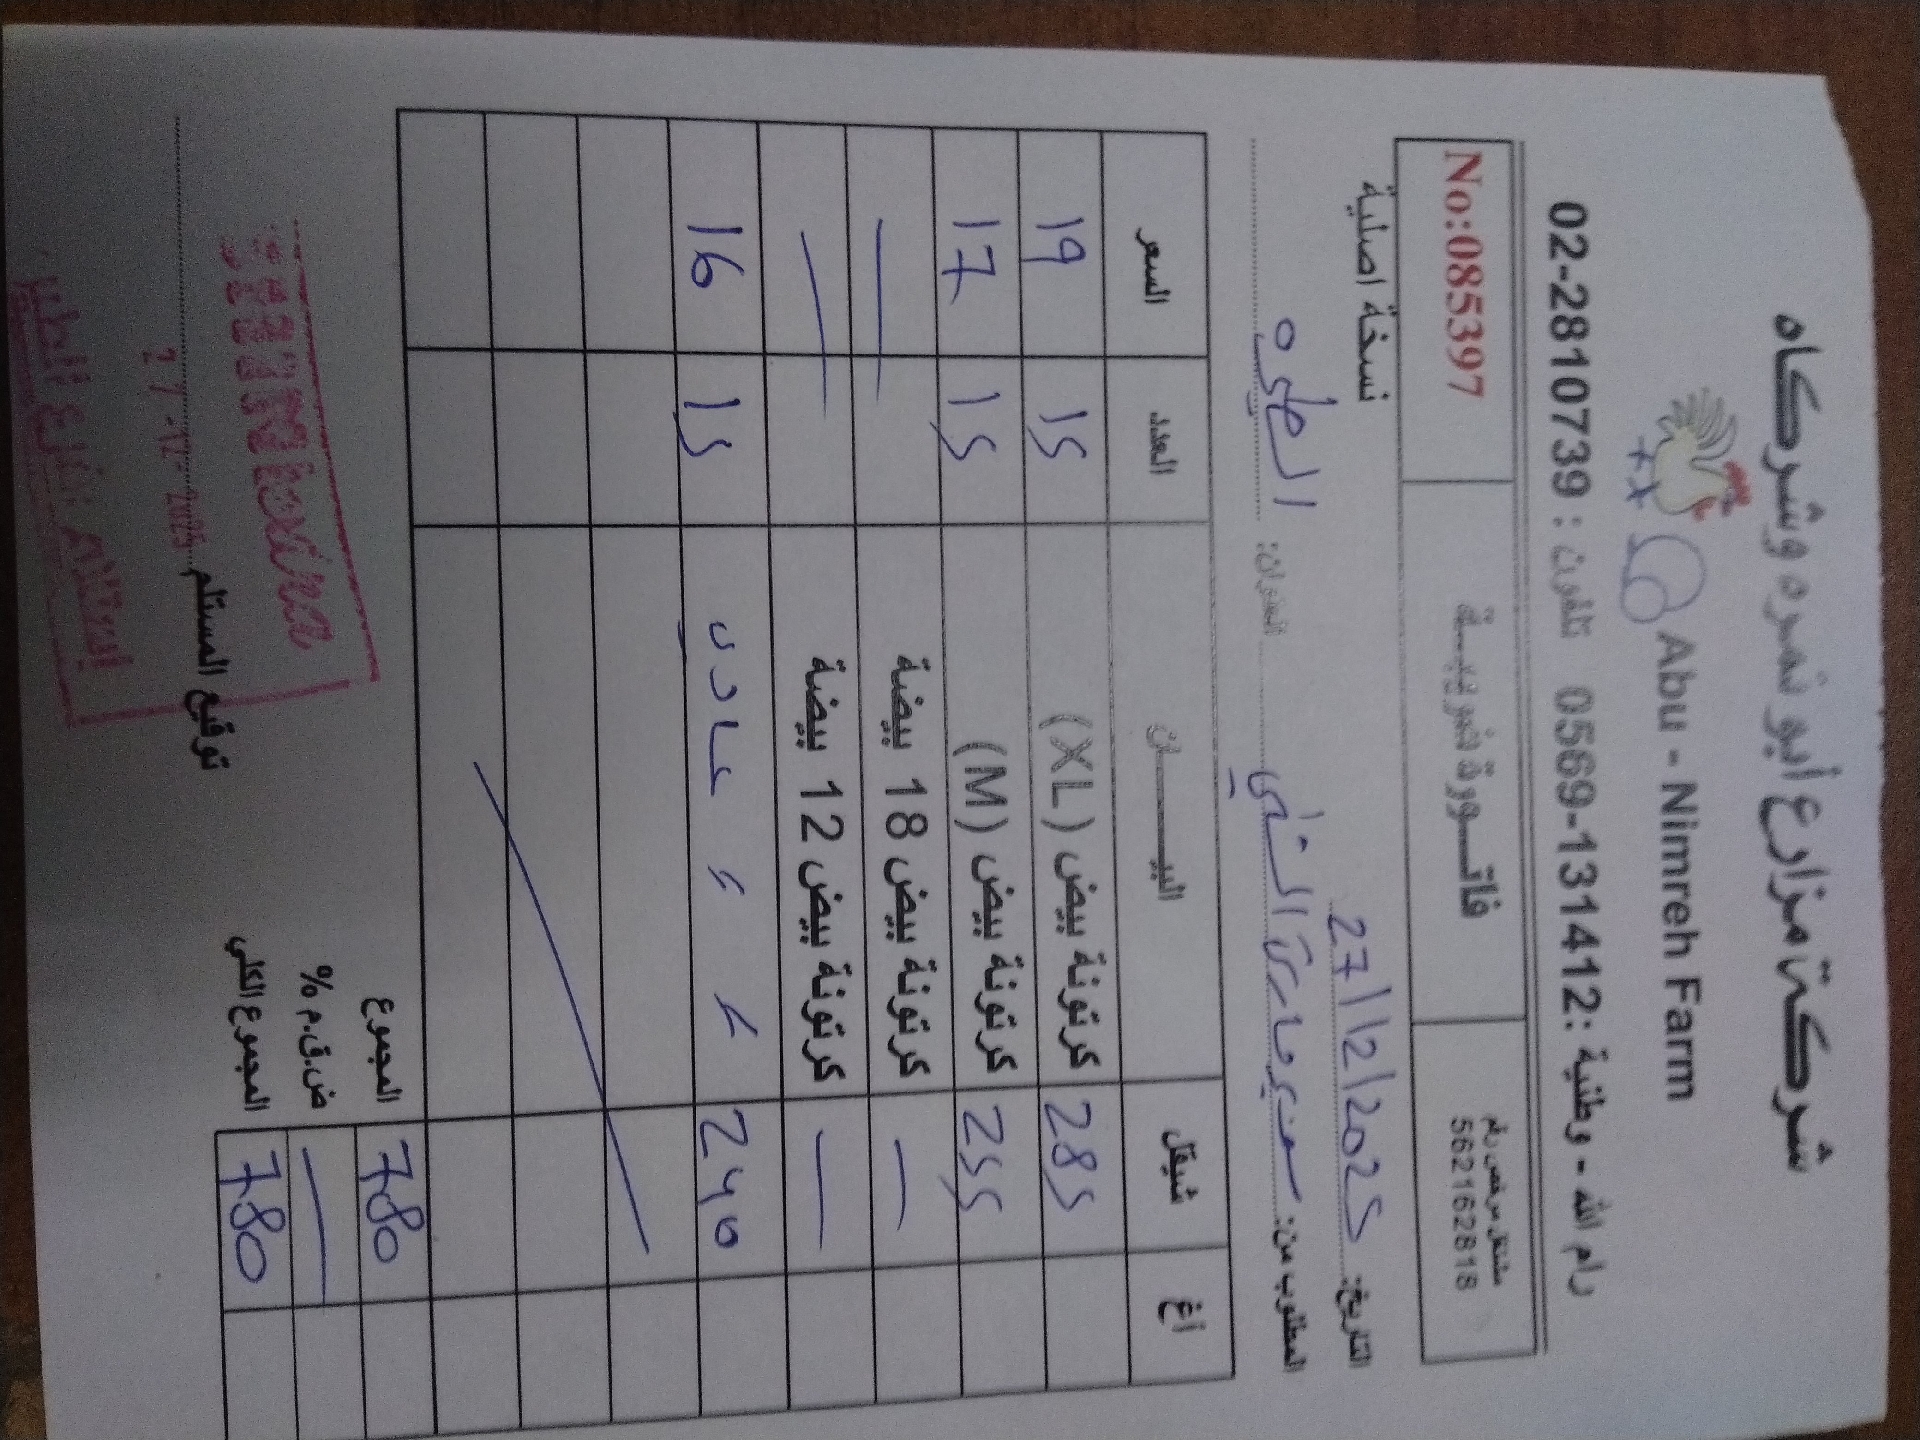 شركة مزارع أبو نمره وشركاه
Abu - Nimreh Farm
رام الله - وطنية : 0569-131412 تلفون : 02-2810739
مشتغل مرخص رقم
562162818
فاتـورة ضريبيـة
No:085397
التاريخ: 27/12/2025
نسخة اصلية
المطلوب من: سوبر ماركت العنوان: الطيره
شيقل اغ البيـــــان العدد السعر
285 كرتونة بيض (XL) 15 19
255 كرتونة بيض (M) 15 17
— كرتونة بيض 18 بيضة —
— كرتونة بيض 12 بيضة —
240 〃 〃 عادي 15 16
المجموع 780
ض.ق.م % —
المجموع الكلي 780
توقيع المستلم
27 -12- 2025
استلام فرع الطيرة